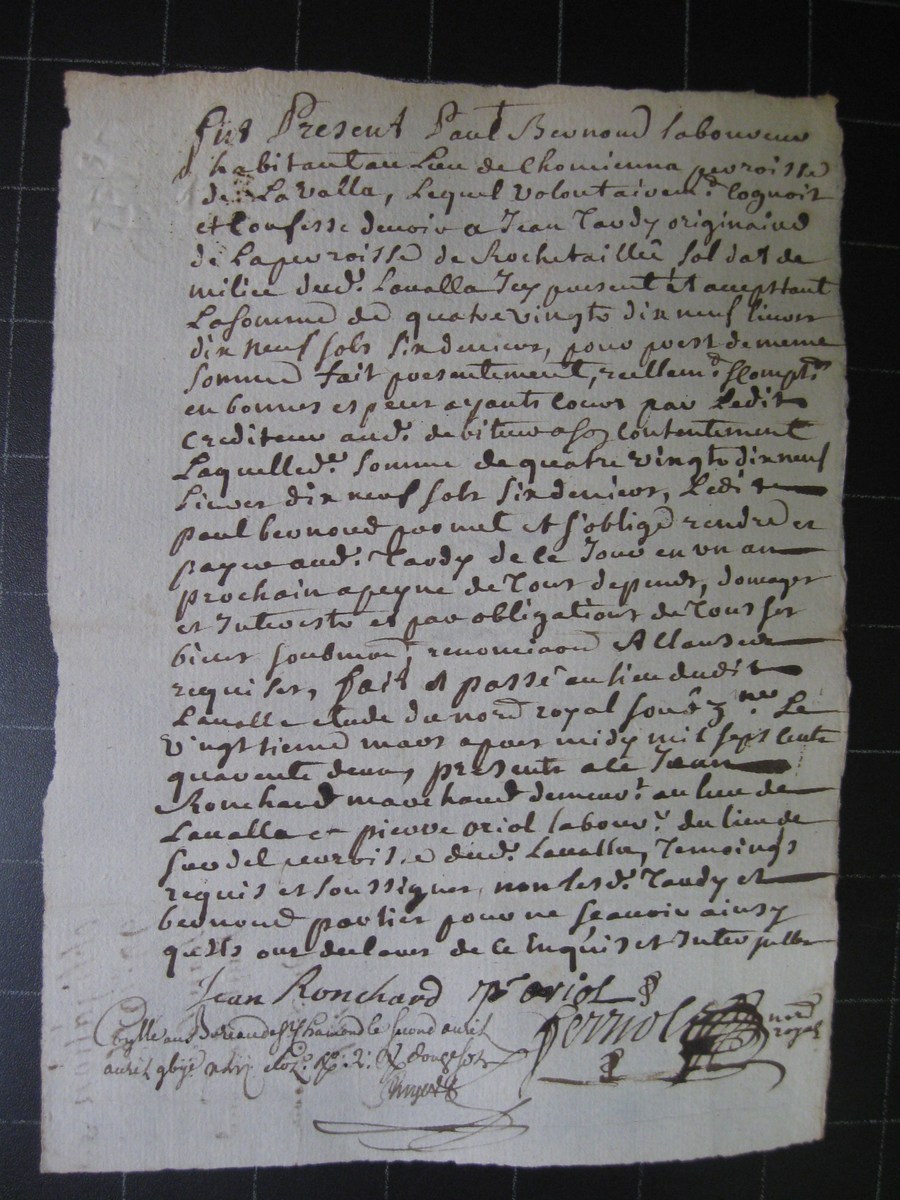 fut Present Paul Bernond laboureur
habitant au Lieu de Lhomienna parroisse
de La Valla, Lequel volontairem.t Cognoit
et Confesse devoir a Jean Tardy originaire
de La parroisse de Rochetaillée soldat de
milice dud.t Lavalla Icy present et acceptant
La somme de quatre vingts dix neuf livres
dix neuf sols six deniers, pour prest de meme
somme fait presentement, reellem.t Compt.t
en bonnes especes ayants cours par Ledit
Crediteur aud.t debiteur a son Contentement
Laquelle d.e somme de quatre vingts dix neuf
Livres dix neuf sols six deniers, Ledit
paul bernond promet et s'oblige rendre et
payer aud.t Tardy de Ce Jour en un an
prochain a peyne de Tous depends, domages
et Interests et par obligations de Tous ses
biens soubmons renonciaons et Clauses
requises, fait et passé au lieu dudit
Lavalla etude du nore royal sousigné Le
vingtieme mars apres midy mil sept Cents
quarente deux, presents a Ce Jean
Ronchard marchand demeur.t au lieu de
Lavalla et pierre oriol labour.r du lieu de
parroisse dud.t Lavalla, Temoings
requis et soussignes, non lesd.ts Tardy et
bernond parties pour ne sçavoir ainsy
qu'ils ont declaré de Ce Enquis et Interpellés
Jean Ronchard pre oriol
ferriol nore royal
Collé au Bureau de St Chamond le second avril